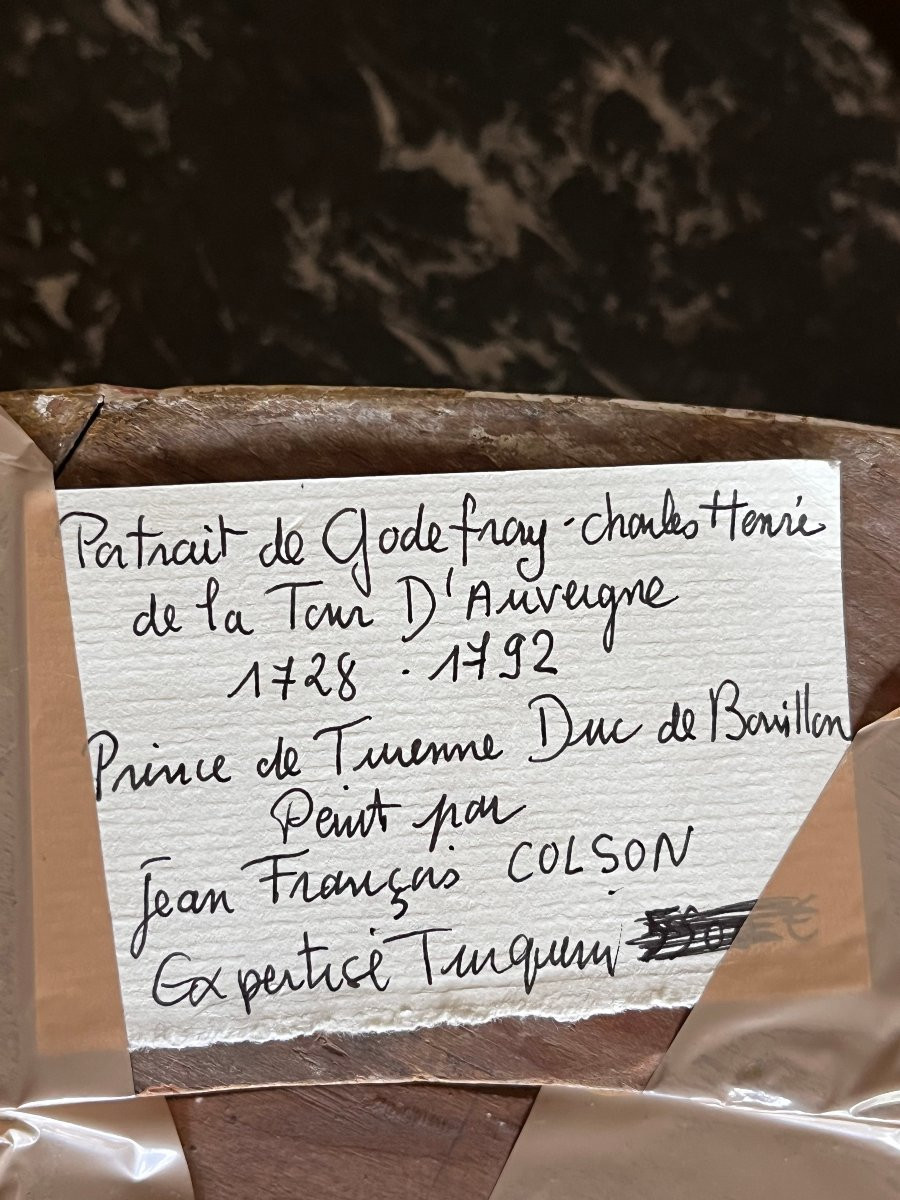 Portrait de Godefroy-Charles Henri
de la Tour D'Auvergne
1728 - 1792
Prince de Turenne Duc de Bouillon
Peint par
Jean François COLSON
Expertisé Turquin